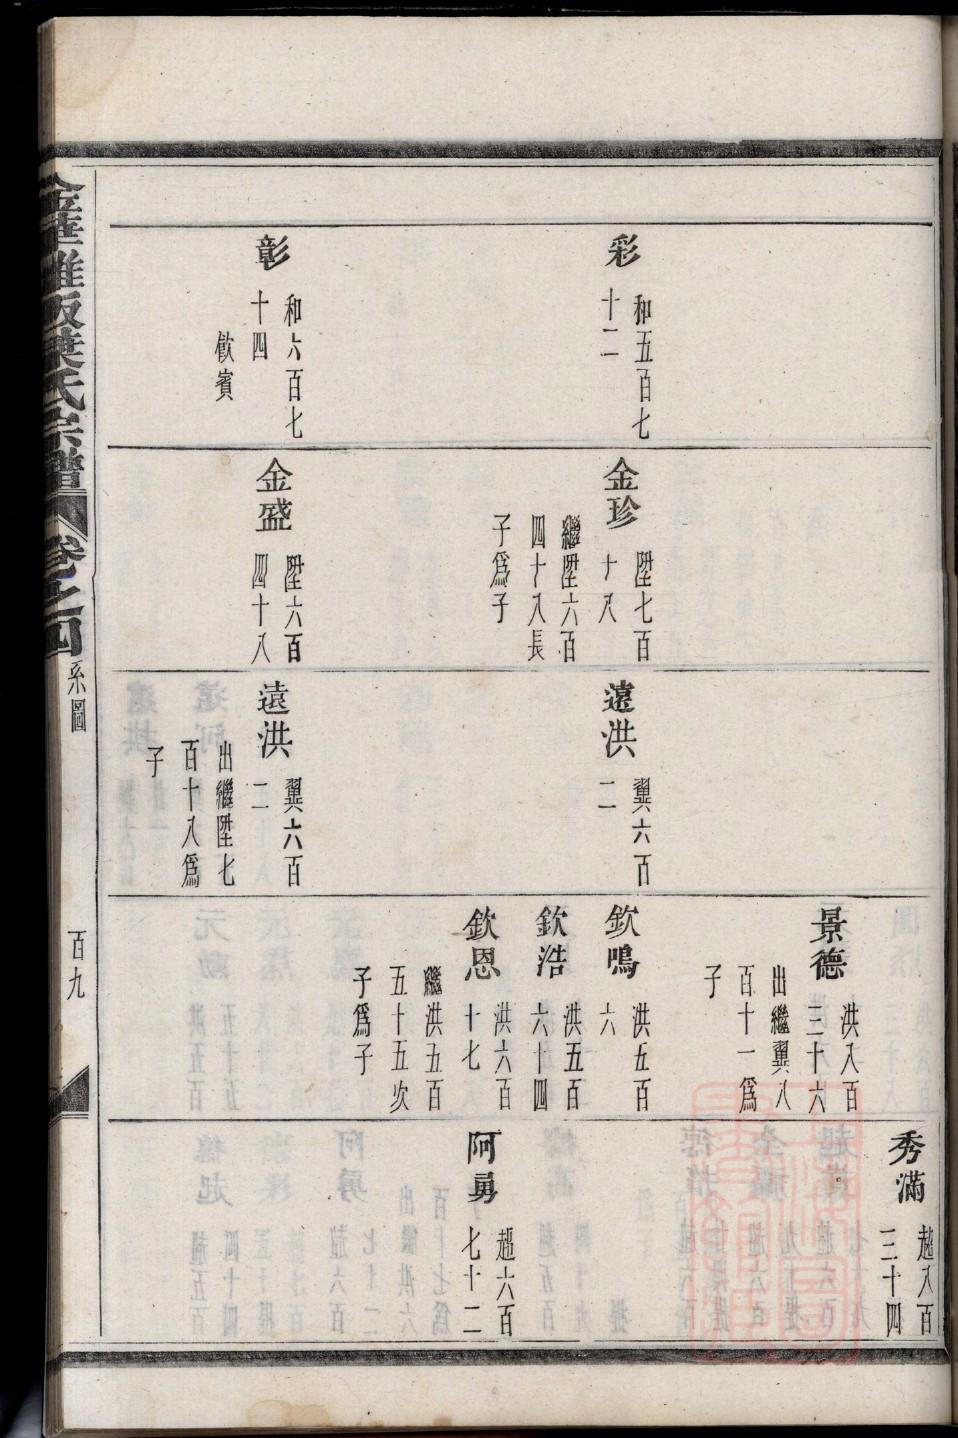 彩
和五百七
十二
彰
和六百七
十四
飲賓
金珍
陞七百
十八
繼陞六百
四十八長
子爲子
金盛
陞六百
四十八
遠洪
翼六百
二
遠洪
翼六百
二
出繼陞七
百十八爲
子
景德
洪八百
三十六
出繼翼八
百十一爲
子
欽鳴
洪五百
六
欽浩
洪五百
六十四
欽恩
洪六百
十七
繼洪五百
五十五次
子爲子
秀滿
越八百
三十四
阿勇
超六百
七十二
金華雅畈葉氏宗譜
卷之四
系圖
百九